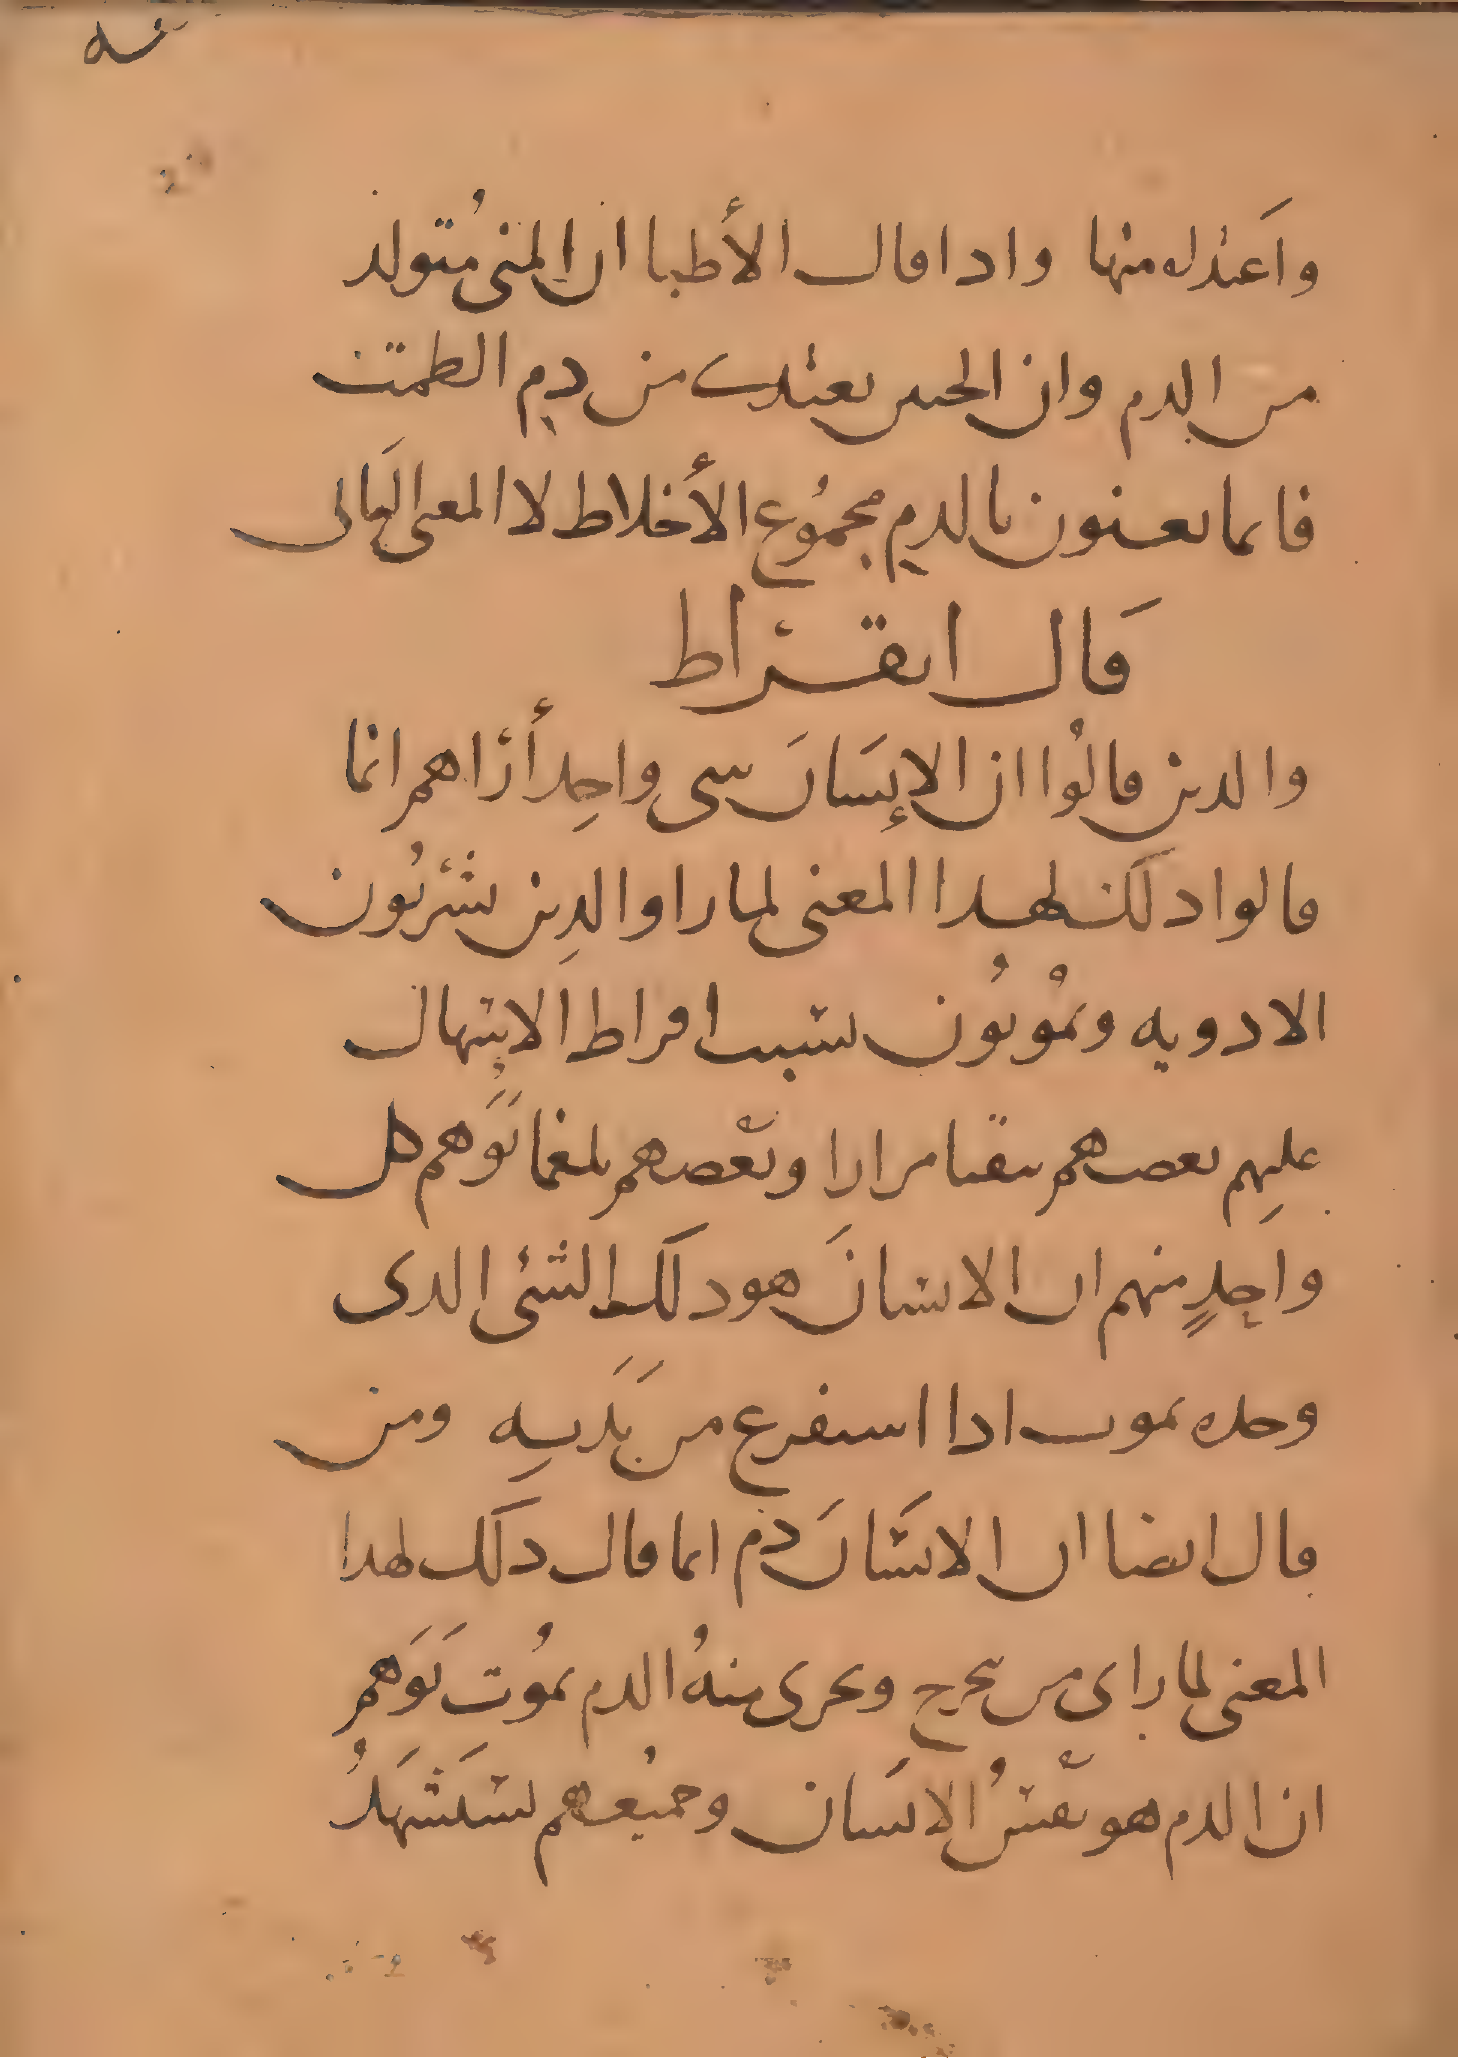 واعتدله منها واذا قال الأطبا ان المني مُتولد
من الدم وان الجنين يغتذي من دم الطمث
فانما يعنون بالدم مجمُوع الأخلاط لا المعنى
قَال ابقراط
والذين قالوُا ان الإنسَانَ شي واحِد أرَاهم انما
قالوا ذلك لهذا المعنى لما راوا الذِين يشرَبُون
الادويه ويموُتوُن بسبب افراط الاسهال
عليهم بعضهم يتقيا مرارا وبعْضهم بلغما تَوَهم كل
واحِدٍ منهم ان الانسانَ هو ذلك الشئ الذى
وحده يموت اذا استفرغ من بَدَنِه ومن
قال ايضا ان الانسَانَ دَم انما قال ذلك لهذا
المعنى لما راى من يجرح ويجرى منهُ الدم يمُوت تَوَهم
ان الدم هو نفْسُ الانسَان وجميُعهم يستَشهَدُ